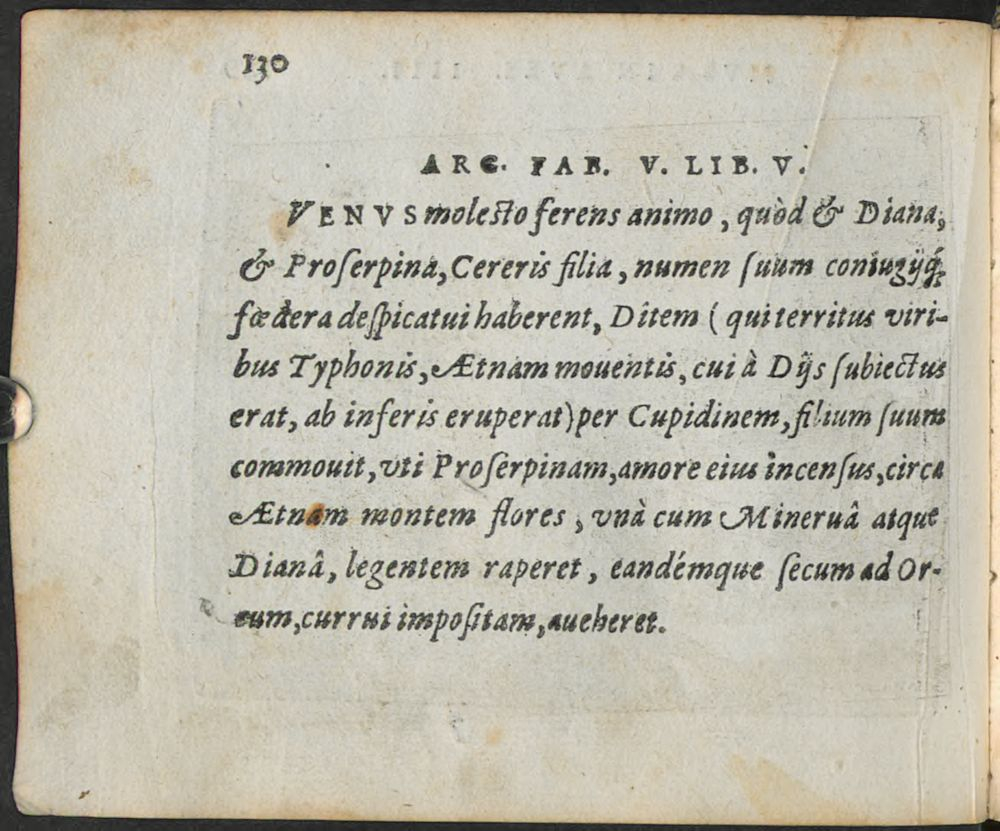 130
ARG. FAB. V. LIB. V.
VENVS molesto ferens animo, quòd & Diana,
& Proſerpina, Cereris filia, numen ſuum coniugijq́;
fœdera deſpicatui haberent, Ditem (qui territus viri-
bus Typhonis, Ætnam mouentis, cui à Dijs ſubiectus
erat, ab inferis eruperat) per Cupidinem, filium ſuum
commouit, vti Proſerpinam, amore eius incenſus, circa
Ætnam montem flores, vnà cum Mineruâ atque
Dianâ, legentem raperet, eandémque ſecum ad Or-
cum, currui impoſitam, aueheret.